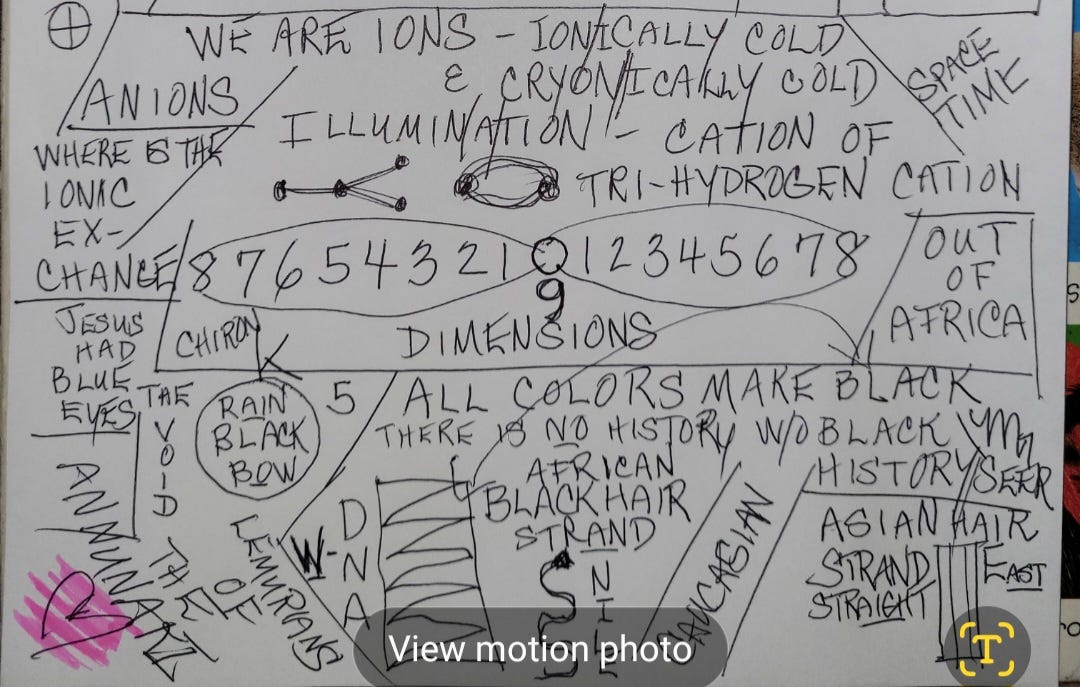 WE ARE IONS - IONICALLY COLD
& CRYONICALLY COLD
SPACE
TIME
ANIONS
ILLUMINATION - CATION OF
TRI-HYDROGEN CATION
WHERE IS THE
IONIC
EX-
CHANGE
8 7 6 5 4 3 2 1 0 1 2 3 4 5 6 7 8
9
OUT
OF
AFRICA
CHIRON
DIMENSIONS
JESUS
HAD
BLUE
EYES
THE
VOID
RAIN
BLACK
BOW
5
ALL COLORS MAKE BLACK
THERE IS NO HISTORY W/O BLACK
HISTORY
SEER
AFRICAN
BLACK HAIR
STRAND
W-
DNA
NILE
ASIAN HAIR
STRAND
STRAIGHT
EAST
ANNUNAKI
THE
OF
LEMURIANS
View motion photo
T